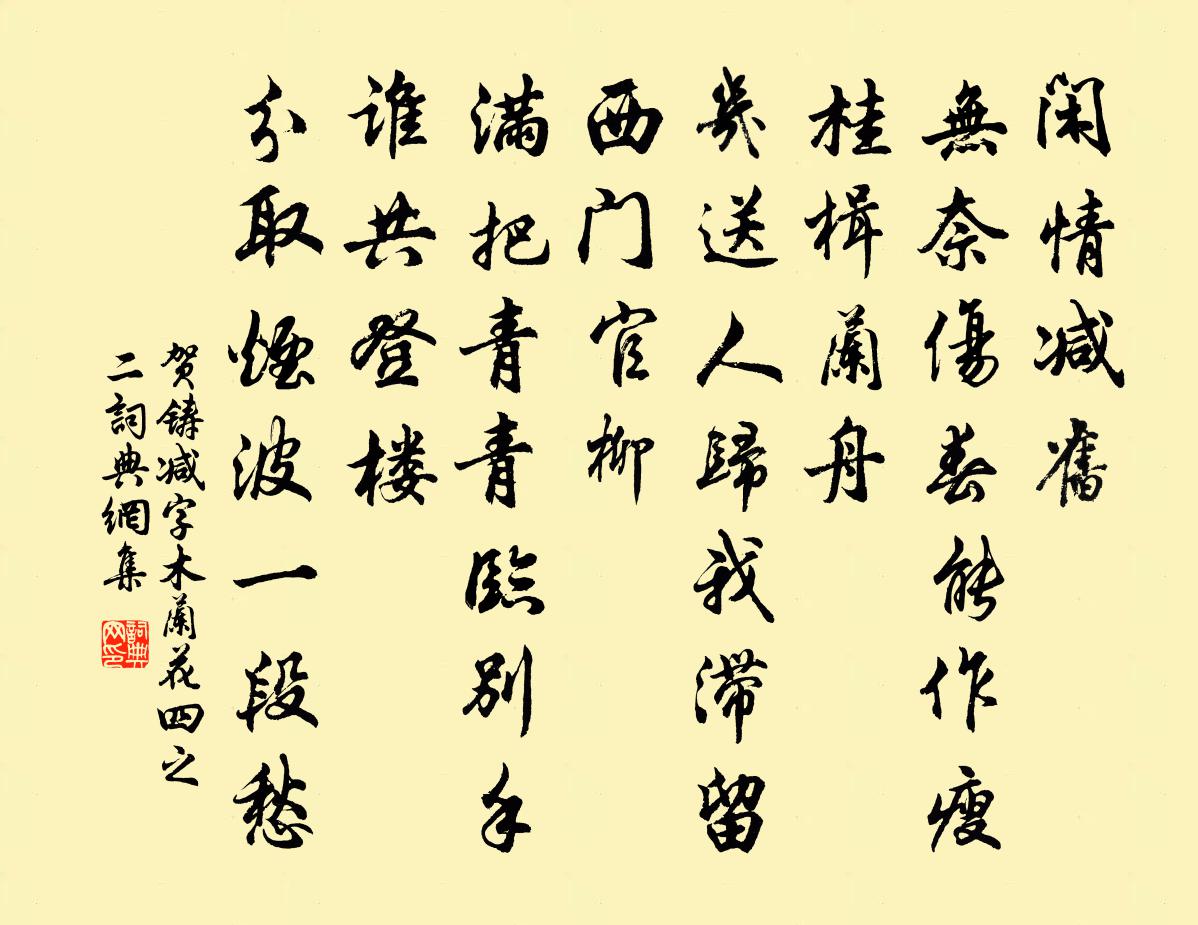 闲情减舊
無奈傷春能作瘦
桂楫蘭舟
幾送人歸我滞留
西门官柳
满把青青臨别手
谁共登楼
分取煙波一段愁
贺鋳减字木蘭花四之
二詞典網集
詞典
网印